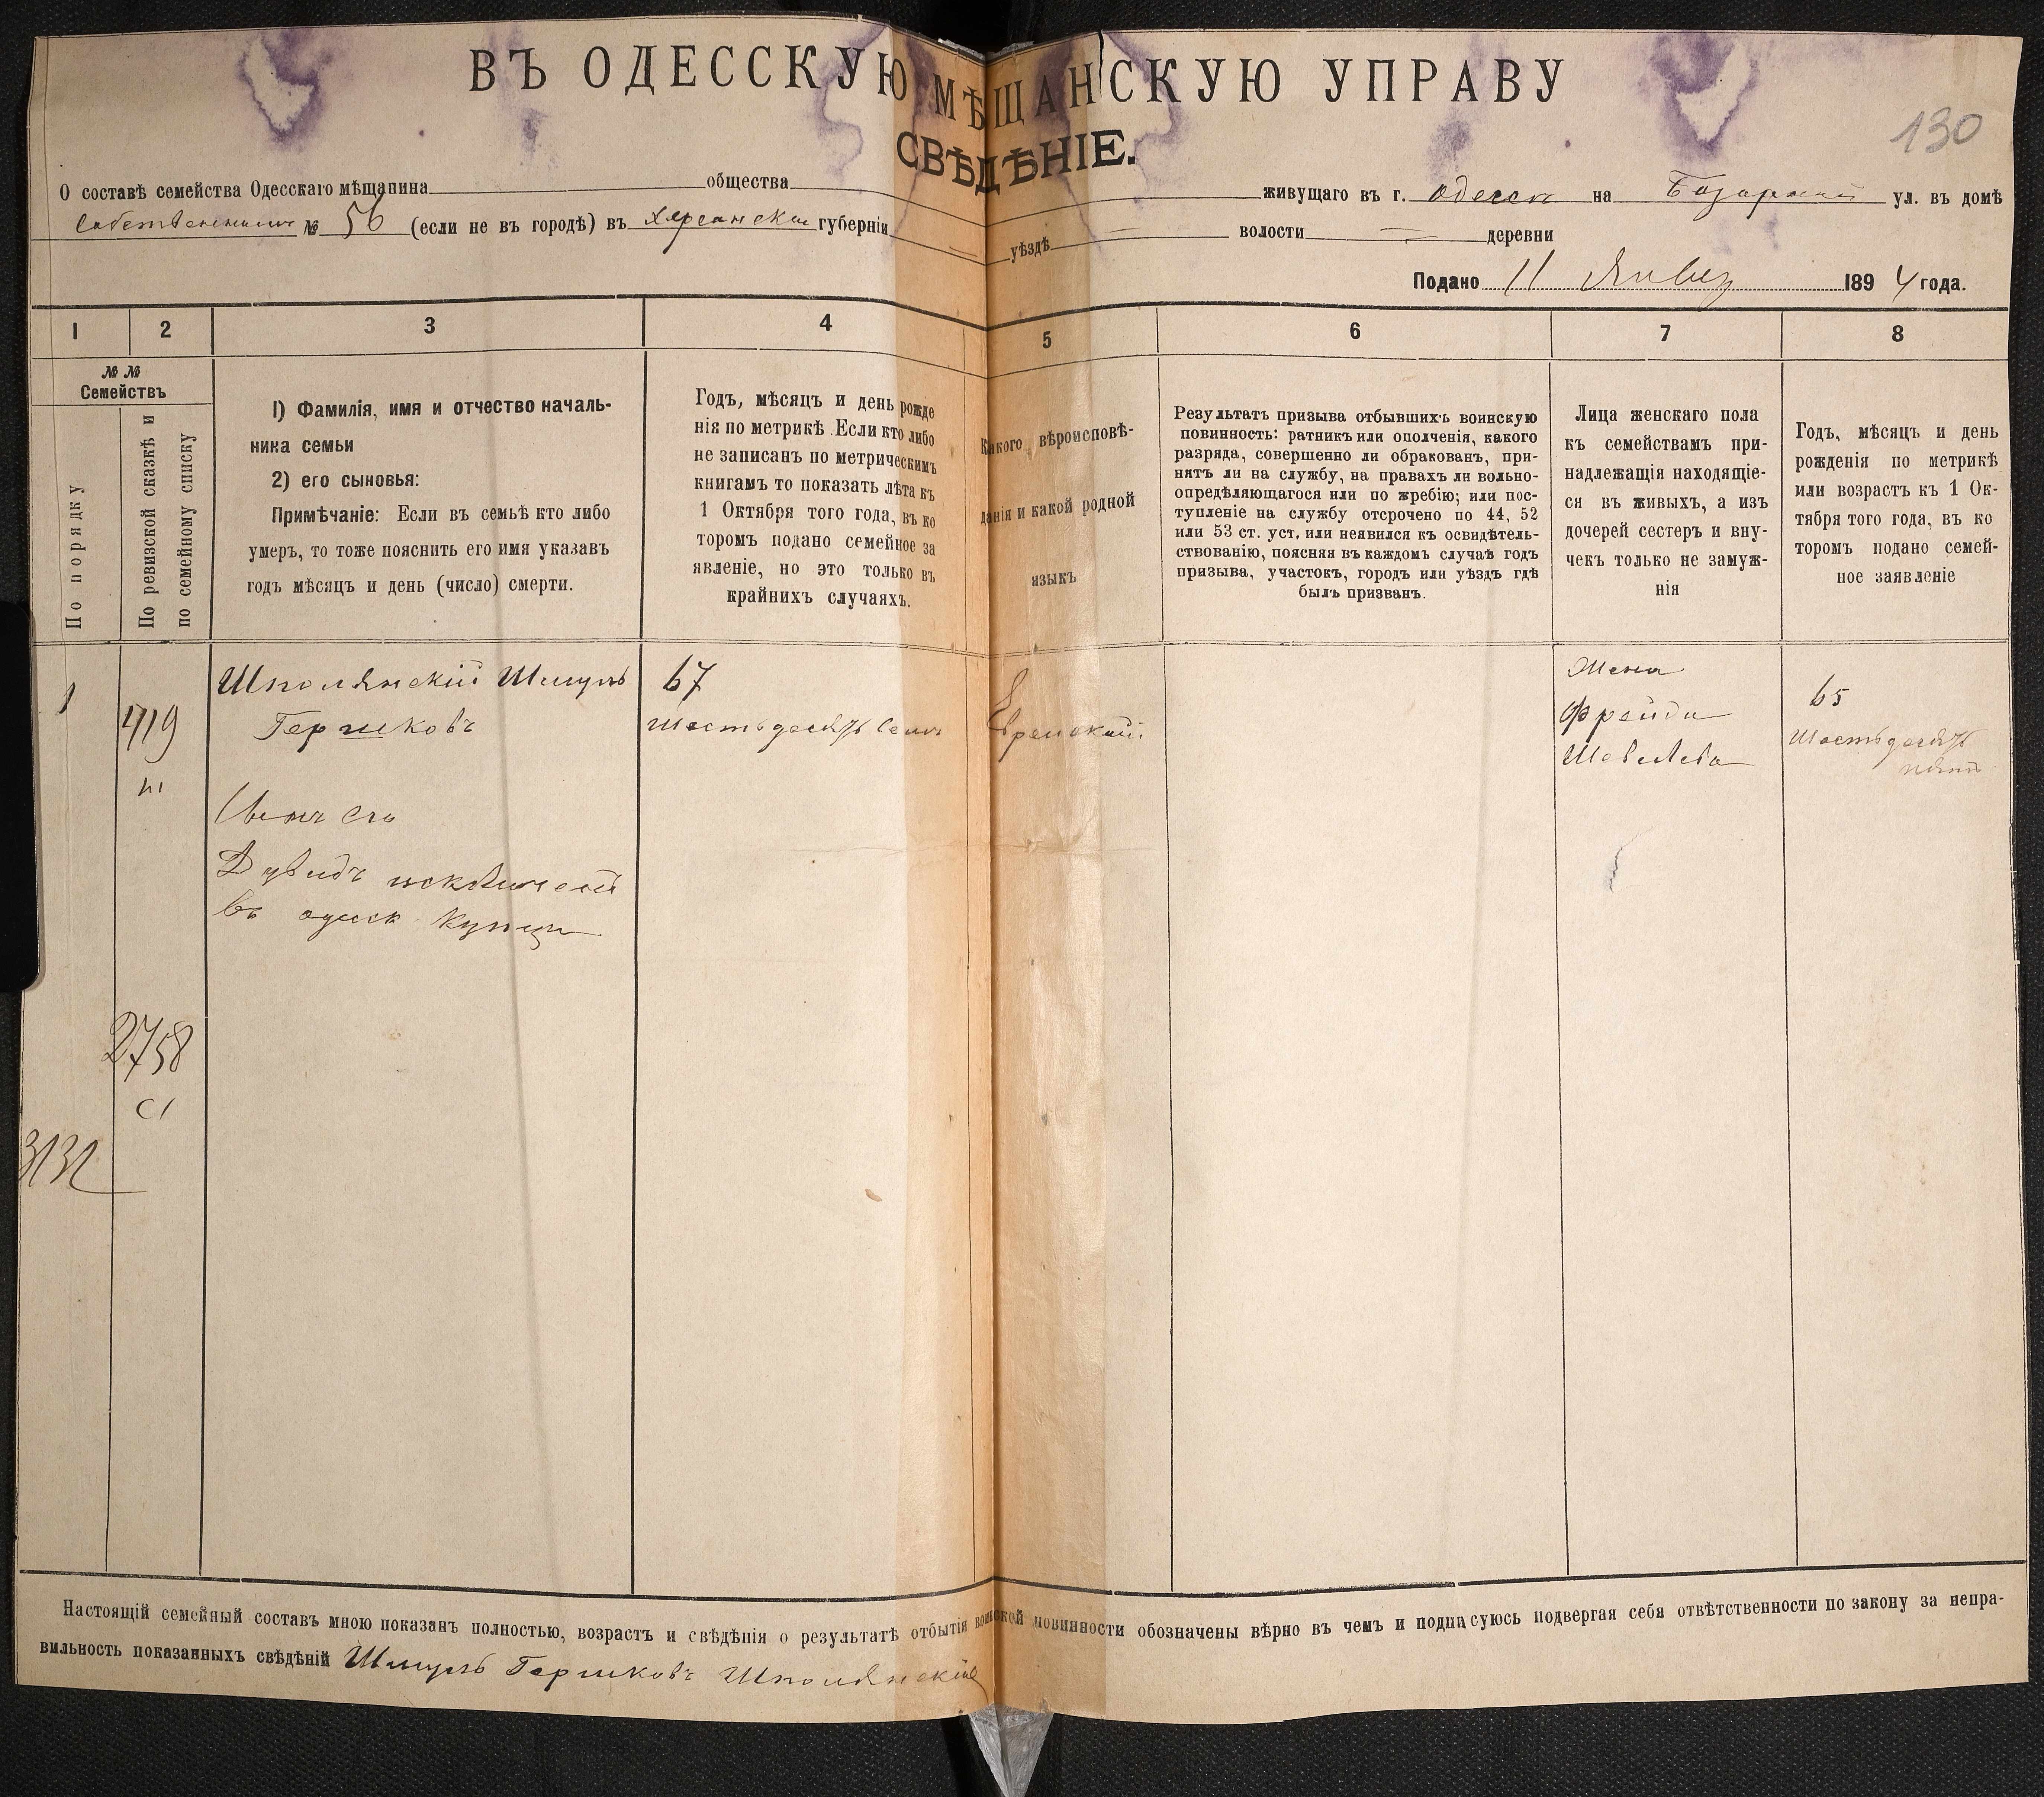 ВЪ ОДЕССКУЮ МѢЩАНСКУЮ УПРАВУ
130
СВѢДѢНІЕ.
О составѣ семейства Одесскаго мѣщанина общества живущаго въ г. Одессѣ на Базарной ул. въ домѣ
Собственномъ № 56 (если не въ городѣ) въ Херсонской губерніи уѣздѣ волости деревни
Подано 11 Январ 1894 года.
1 2 3 4 5 6 7 8
№ №
Семействъ
По порядку
По ревизской сказкѣ и
по семейному списку
1) Фамилія, имя и отчество началь-
ника семьи
2) его сыновья:
Примѣчаніе: Если въ семьѣ кто либо
умеръ, то тоже пояснить его имя указавъ
годъ мѣсяцъ и день (число) смерти.
Годъ, мѣсяцъ и день рожде
нія по метрикѣ. Если кто либо
не записанъ по метрическимъ
книгамъ то показать лѣта къ
1 Октября того года, въ ко
торомъ подано семейное за
явленіе, но это только въ
крайнихъ случаяхъ.
Какого вѣроисповѣ-
данія и какой родной
языкъ
Результатъ призыва отбывшихъ воинскую
повинность: ратникъ или ополченія, какого
разряда, совершенно ли обракованъ, при-
нятъ ли на службу, на правахъ ли вольно-
опредѣляющагося или по жребію; или пос-
тупленіе на службу отсрочено по 44, 52
или 53 ст. уст. или неявился къ освидѣтель-
ствованію, поясняя въ каждомъ случаѣ годъ
призыва, участокъ, городъ или уѣздъ гдѣ
былъ призванъ.
Лица женскаго пола
къ семействамъ при-
надлежащія находящіе-
ся въ живыхъ, а изъ
дочерей сестеръ и вну-
чекъ только не замуж-
нія
Годъ, мѣсяцъ и день
рожденія по метрикѣ
или возрастъ къ 1 Ок-
тября того года, въ ко
торомъ подано семей-
ное заявленіе
1
719
Шполянскій Шмуль
Гершковъ
67
Шестьдесятъ семь
Еврейскій
Жена
Фрейда
Шевелева
65
Шестьдесятъ
пять
Сынъ его
Дувидъ исключенъ
въ одесск купцы
2758
3132
Настоящій семейный составъ мною показанъ полностью, возрастъ и свѣдѣнія о результатѣ отбытія воинской повинности обозначены вѣрно въ чемъ и подписуюсь подвергая себя отвѣтственности по закону за непра-
вильность показанныхъ свѣдѣній Шмуль Гершковъ Шполянскій